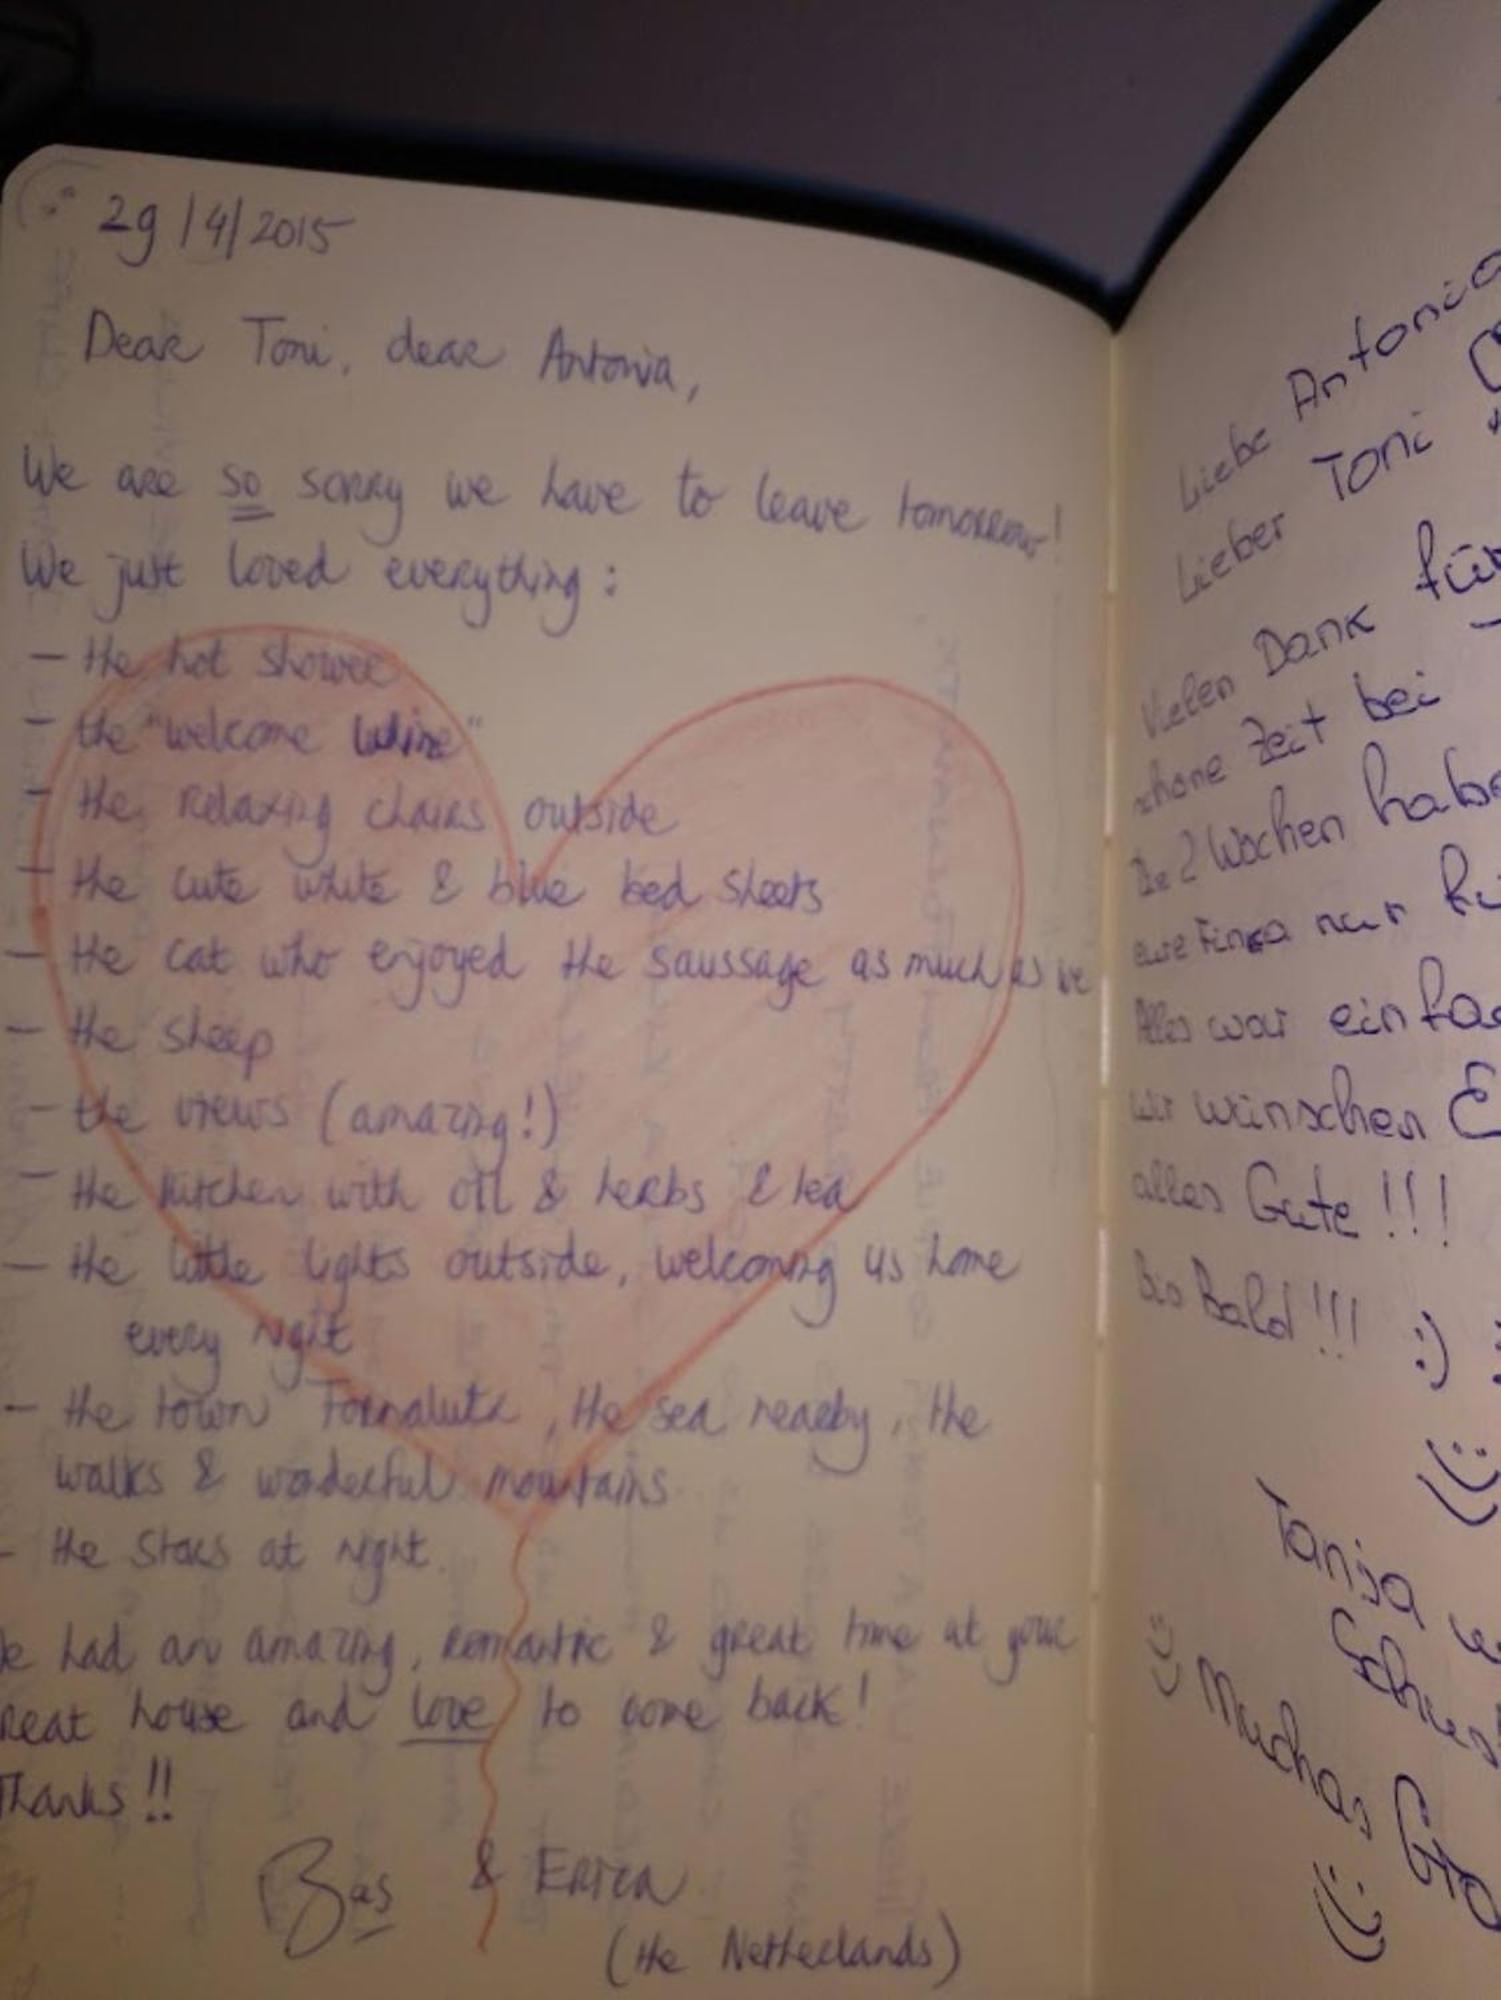 29/4/2015
Dear Toni, dear Antonia,
We are so sorry we have to leave tomorrow!
We just loved everything:
- the hot shower
- the "welcome wine"
- the relaxing chairs outside
- the cute white & blue bed sheets
- the cat who enjoyed the saussage as much as we
- the sheep
- the views (amazing!)
- the kitchen with oil & herbs & tea
- the little lights outside, welcoming us home
every night
- the town Fornalutx, the sea nearby, the
walks & wonderful mountains
- the stars at night.
had an amazing, romantic & great time at your
neat house and love to come back!
Thanks!!
Bas & Erica
(the Netherlands)
Liebe Antonia
Lieber Toni
Vielen Dank für
schöne Zeit bei
Die 2 Wochen habe
eure Finca nur
Alles war einfa
wir wünschen E
alles Gute!!!
Bis Bald!!! :)
Tanja
Muchas